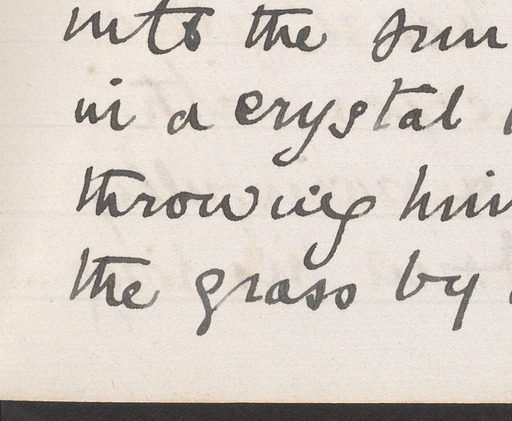 into the sun
in a crystal
throwing him
the grass by